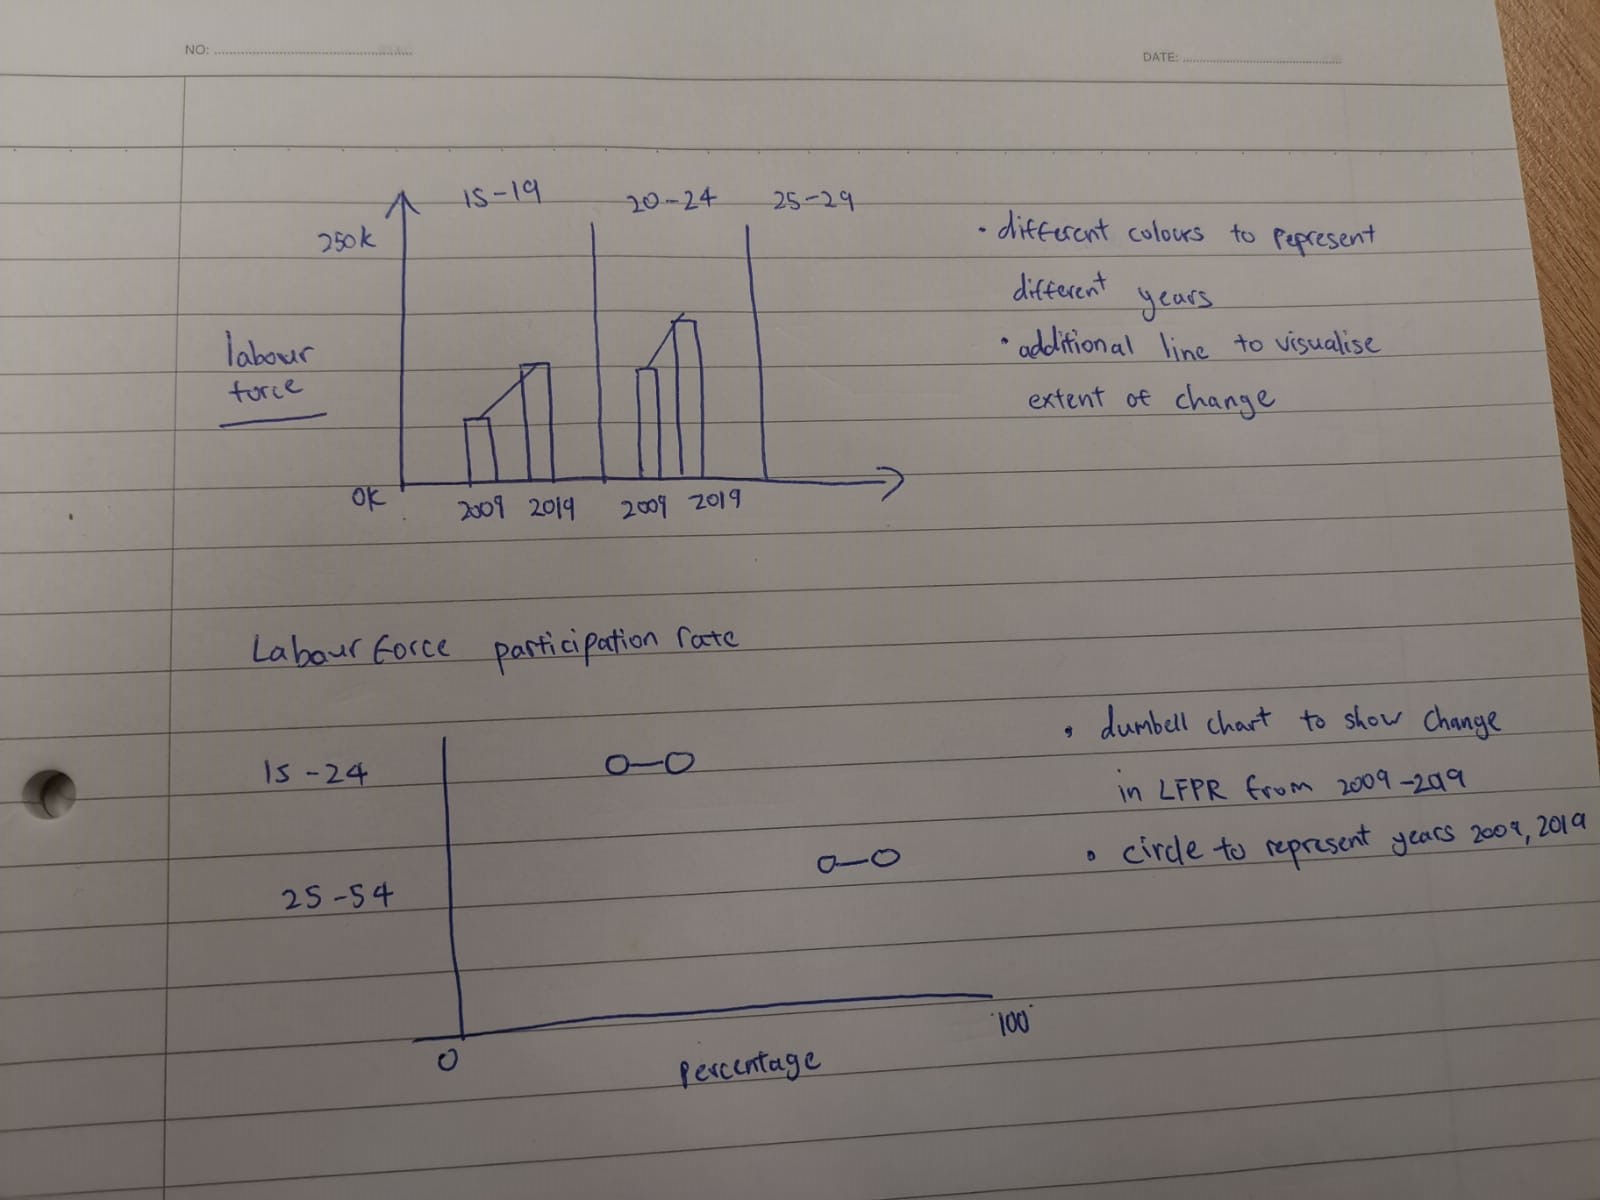 NO:
DATE:
15-19
20-24
25-29
250k
labour
force
0k
2009 2019 2009 2019
• different colours to represent
different years
• additional line to visualise
extent of change
Labour force participation rate
15-24
25-54
0
100
percentage
• dumbell chart to show change
in LFPR from 2009-2019
• circle to represent years 2009, 2019